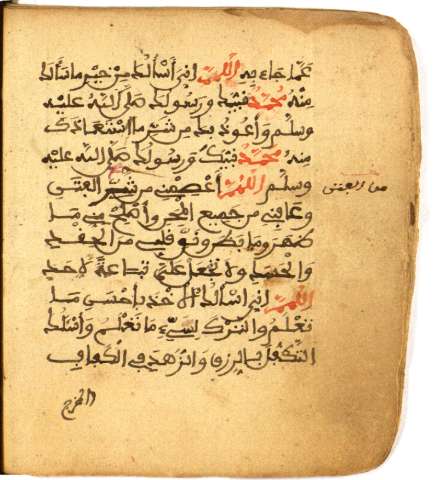 عما جاء به اللهم إني أسألك من خير ما سألك
منه محمد نبيك ورسولك صلى الله عليه
وسلم وأعوذ بك من شر ما استعاذك
منه محمد نبيك ورسولك صلى الله عليه
وسلم اللهم اعصمني من شر الفتن
وعافني من جميع المحن وأصلح مني ما
ظهر وما بطن ونق قلبي من الحقد
والحسد ولا تجعل علي تباعة لأحد
اللهم إني أسألك الأخذ بأحسن ما
تعلم والترك لسيئ ما تعلم وأسألك
التكفل بالرزق والزهد في الكفاف
والمخرج